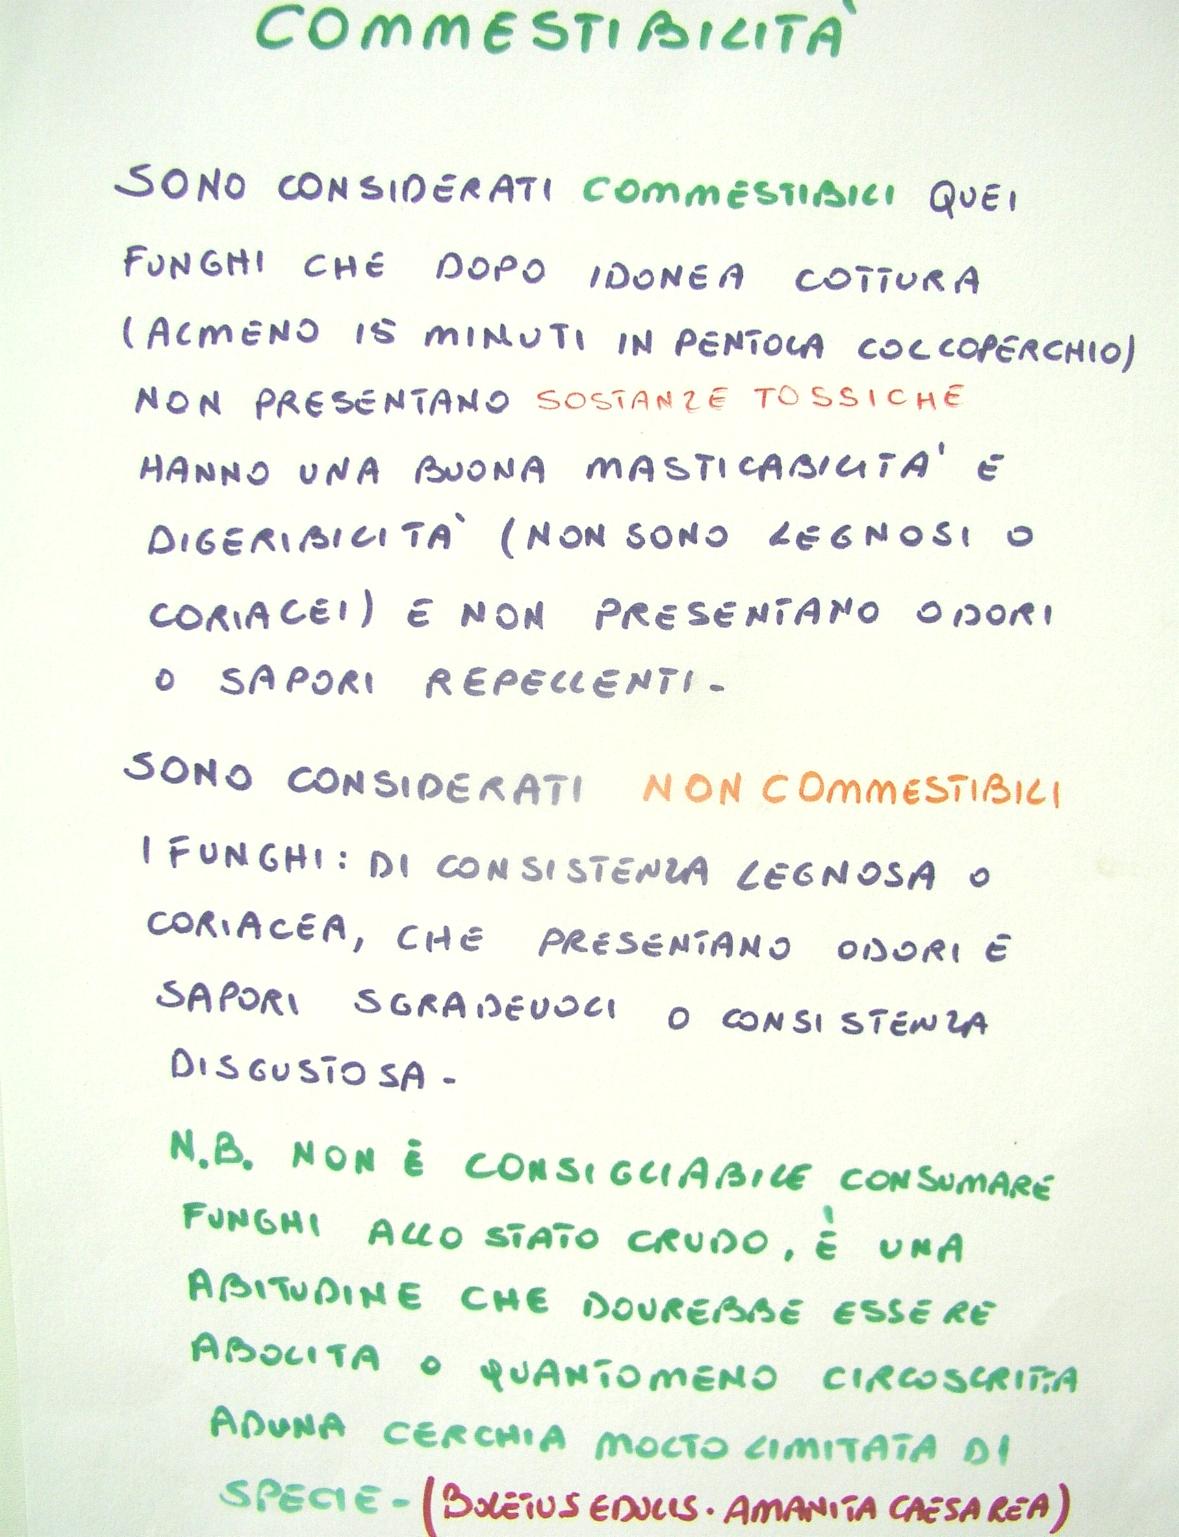 COMMESTIBILITÀ
SONO CONSIDERATI COMMESTIBILI QUEI
FUNGHI CHE DOPO IDONEA COTTURA
(ALMENO 15 MINUTI IN PENTOLA COL COPERCHIO)
NON PRESENTANO SOSTANZE TOSSICHE
HANNO UNA BUONA MASTICABILITA' E
DIGERIBILITÀ (NON SONO LEGNOSI O
CORIACEI) E NON PRESENTANO ODORI
O SAPORI REPELLENTI-
SONO CONSIDERATI NON COMMESTIBILI
I FUNGHI: DI CONSISTENZA LEGNOSA O
CORIACEA, CHE PRESENTANO ODORI E
SAPORI SGRADEVOLI O CONSISTENZA
DISGUSTOSA-
N.B. NON È CONSIGLIABILE CONSUMARE
FUNGHI ALLO STATO CRUDO, È UNA
ABITUDINE CHE DOVREBBE ESSERE
ABOLITA O QUANTOMENO CIRCOSCRITTA
AD UNA CERCHIA MOLTO LIMITATA DI
SPECIE-(BOLETUS EDULIS. AMANITA CAESAREA)